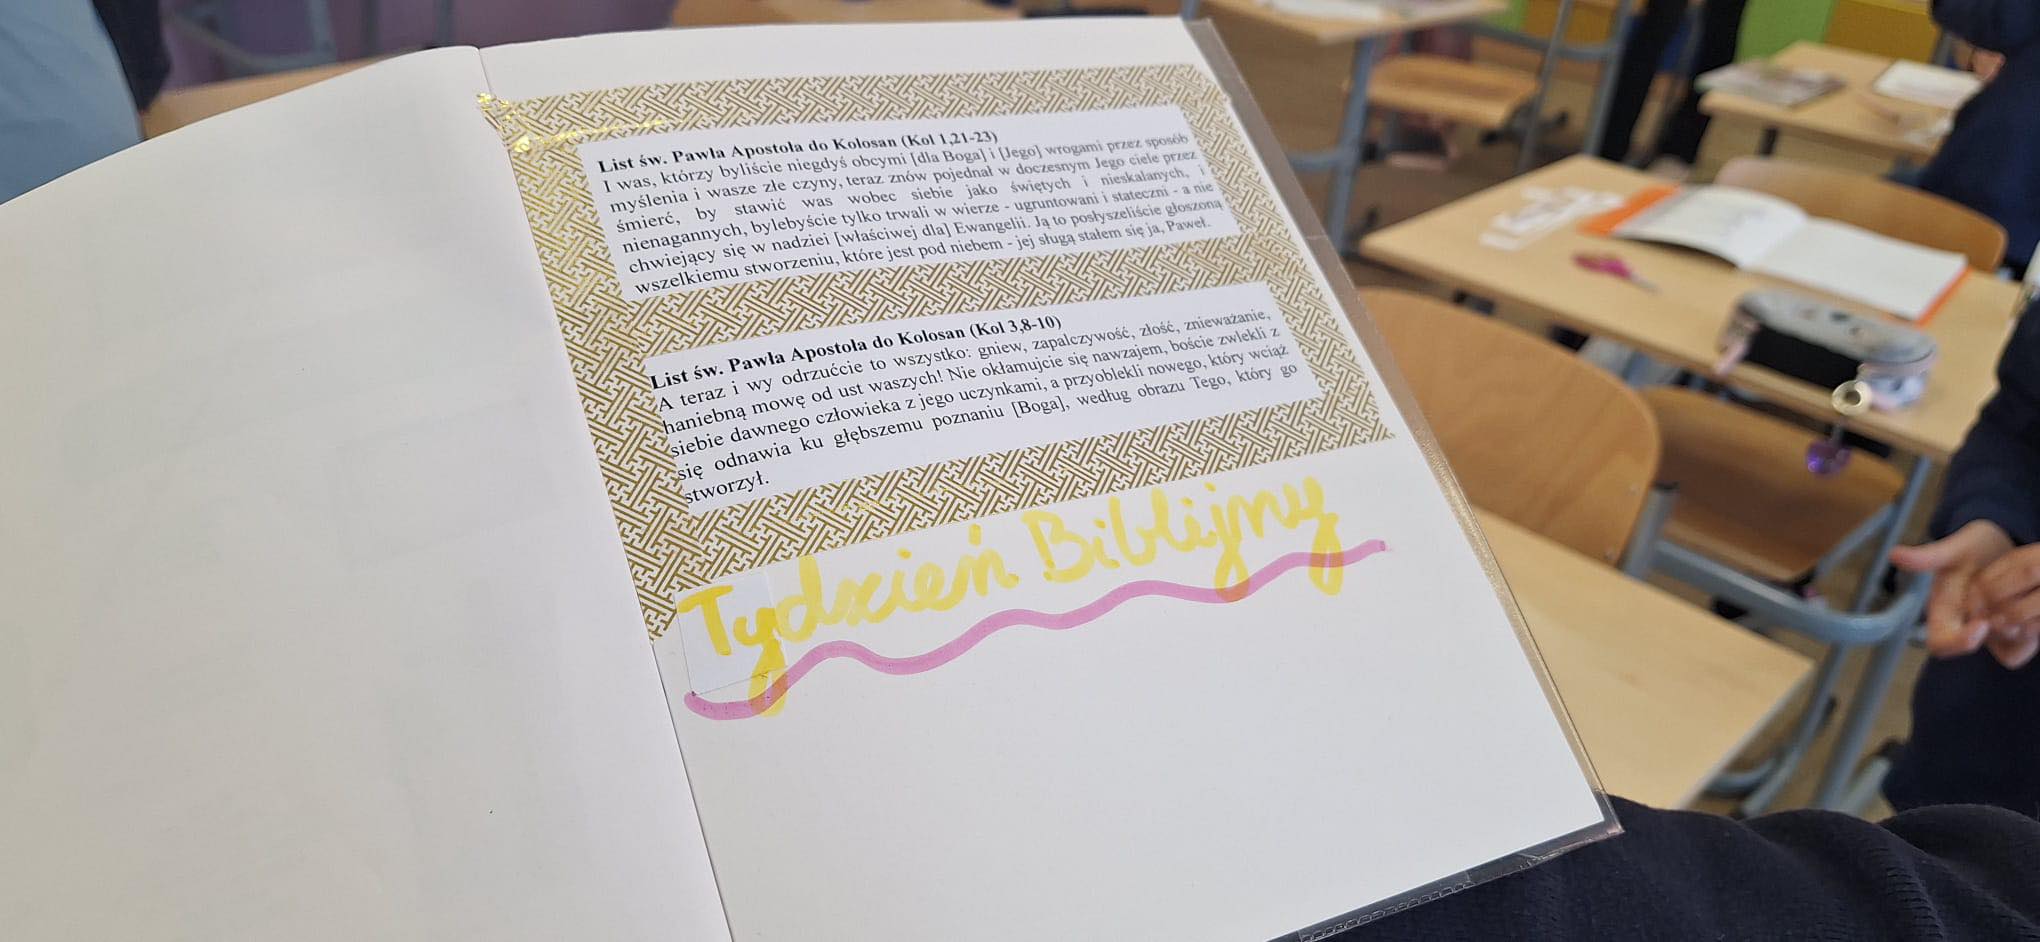 List św. Pawła Apostoła do Kolosan (Kol 1,21-23)
I was, którzy byliście niegdyś obcymi [dla Boga] i [Jego] wrogami przez sposób
myślenia i wasze złe czyny, teraz znów pojednał w doczesnym Jego ciele przez
śmierć, by stawić was wobec siebie jako świętych i nieskalanych, i
nienagannych, bylebyście tylko trwali w wierze - ugruntowani i stateczni - a nie
chwiejący się w nadziei [właściwej dla] Ewangelii. Ją to posłyszeliście głoszoną
wszelkiemu stworzeniu, które jest pod niebem - jej sługą stałem się ja, Paweł.
List św. Pawła Apostoła do Kolosan (Kol 3,8-10)
A teraz i wy odrzućcie to wszystko: gniew, zapalczywość, złość, znieważanie,
haniebną mowę od ust waszych! Nie okłamujcie się nawzajem, boście zwlekli z
siebie dawnego człowieka z jego uczynkami, a przyoblekli nowego, który wciąż
się odnawia ku głębszemu poznaniu [Boga], według obrazu Tego, który go
stworzył.
Tydzień Biblijny